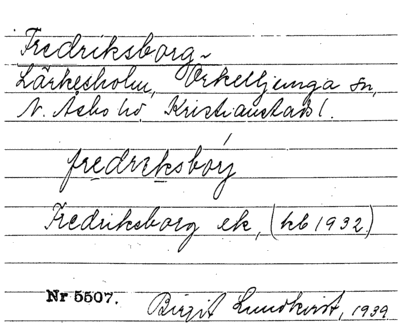 Fredriksborg
Lärkesholm, Örkelljunga sn,
N. Åsbo hd Kristianstads l.
fredreksborj
Fredriksborg ek, (kb 1932.)
Nr 5507. Birgit Lundkvist, 1939